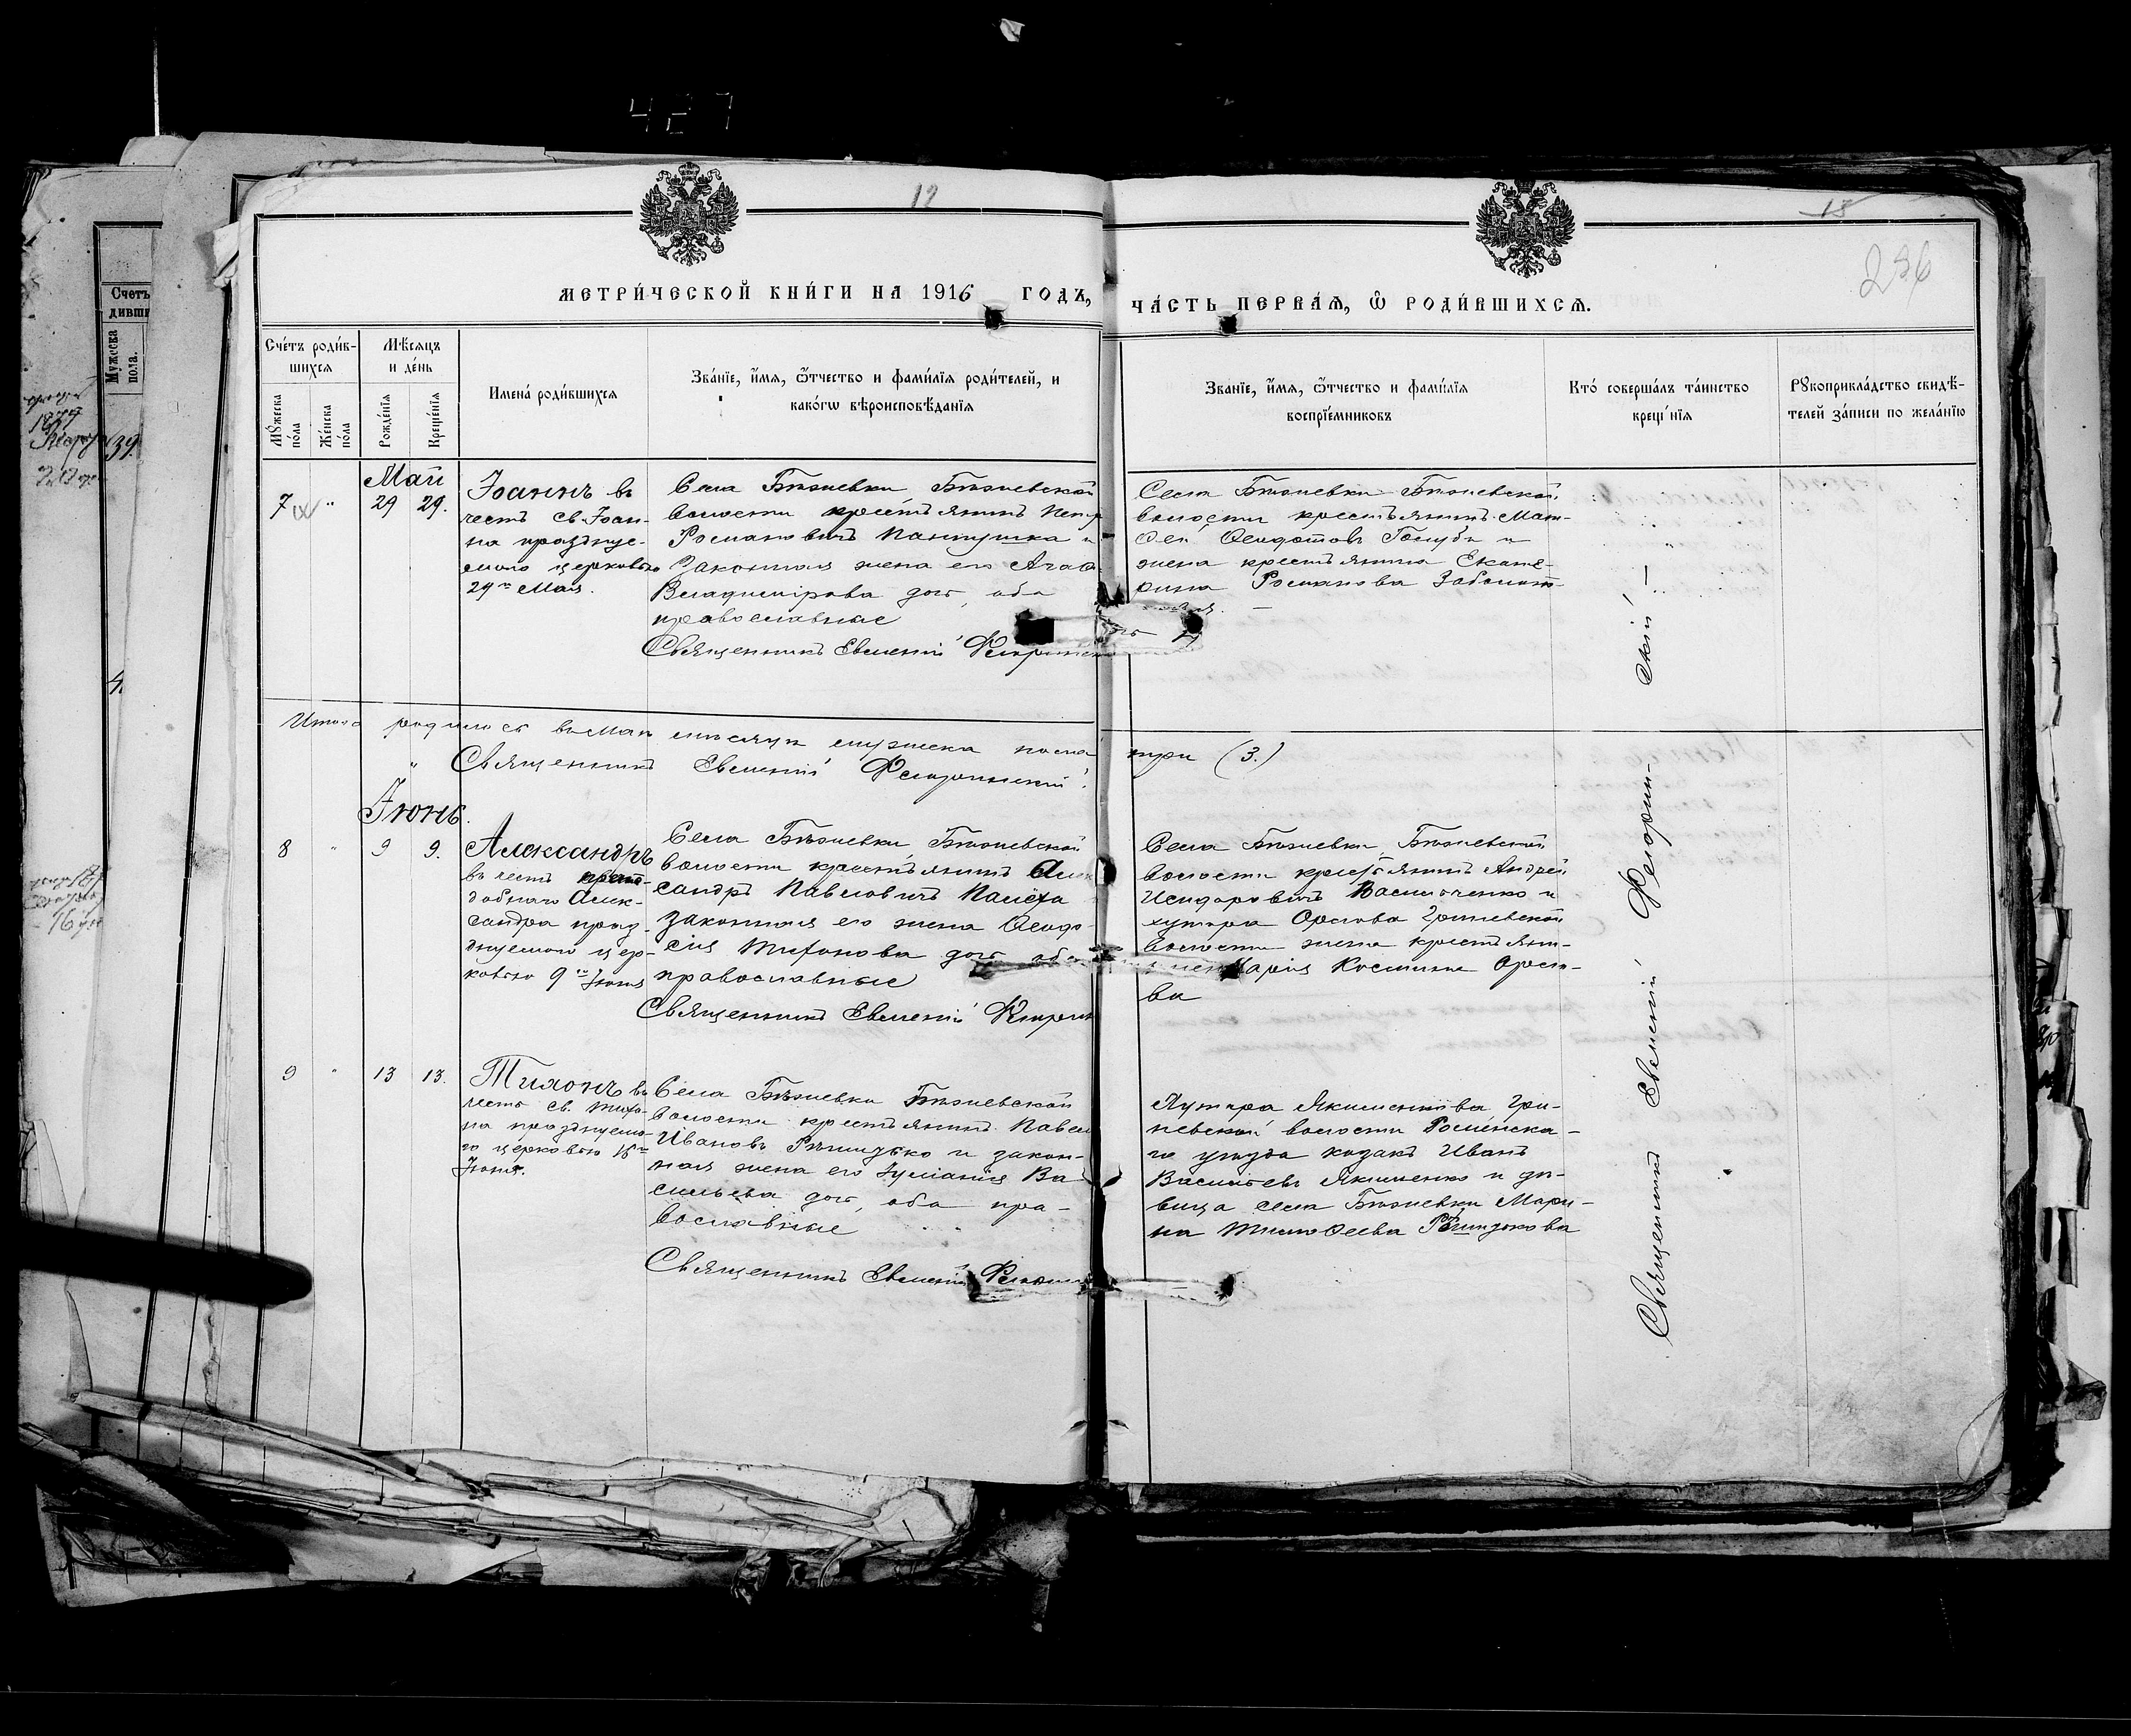 427
12
15
236
МЕТРИ́ЧЕСКОЙ КНИ́ГИ НА 1916 ГОДЪ,
ЧА́СТЬ ПЕРВАѦ, Ѿ РОДИ́ВШИХСѦ.
Сче́тъ роди́в-
шихсѧ
Мѣ́сѧцъ
и де́нь
Мꙋ́жеска по́ла
Же́нска по́ла
Рожде́нїѧ
Креще́нїѧ
Имена̀ роди́вшихсѧ
Зва́нїе, и́мѧ, ѻ́тчество и фами́лїѧ роди́телей, и
како́гѡ вѣроисповѣ́данїѧ
Зва́нїе, и́мѧ, ѻ́тчество и фами́лїѧ
воспрїе́мниковъ
Кто́ соверша́лъ та́инство
креще́нїѧ
Рꙋкоприкла́дство свидѣ́-
телей за́писи по жела́нїю
Май
7 " 29 29.
Іоаннъ въ
честь св. Іоан-
на празднуе-
маго церковью
29го Мая.
Села Бѣзиевки, Бѣзиевской
волости крестьянинъ Петр
Романовичъ Пантушка и
законная жена его Агаѳ
Владимірова дочь, оба
православные
Священникъ Евменій
Села Бѣзиевки Бѣзиевской
волости крестьянинъ Мат-
ѳей Ѳеодотовъ Голубъ и
жена крестьянина Екате-
рина Романова Заболот-
Итого родилось въ Маѣ мѣсяцѣ мужеска пола три (3.)
" Священникъ Евменій
Іюнь.
8 " 9 9.
Александръ
въ честь препо-
добнаго Алек-
сандра праз-
днуемаго цер-
ковью 9го Іюня
Села Бѣзиевки, Бѣзиевской
волости крестьянинъ Алек
сандръ Павловичъ Палёха
законная его жена Ѳеодо-
сія Тихонова дочь оба
православные
Священникъ Евменій
Села Бѣзиевки, Бѣзиевской
волости крестьянинъ Андрей
Исидоровичъ Васильченко и
хутора Орлова Гриневской
волости жена крестьян-
Марія Космина Орло-
ва
9 " 13 13.
Тихонъ въ
честь св. Тихо-
на празднуемо-
го церковью 16го
Іюня.
Села Бѣзиевки Бѣзиевской
волости крестьянинъ Павел
Ивановъ Рѣпидько и закон-
ная жена его Іуліанія Ва
сильева дочь, оба пра-
вославные
Священникъ Евменій
Хутора Якименкова Гри-
невской волости Роменска-
го уѣзда козакъ Иванъ
Васильевъ Якименко и дѣ-
вица села Бѣзиевки Мари-
на Тимоѳеева
Священникъ Евменій
Счетъ
дивши
Мужеска
пола.
39.
4.